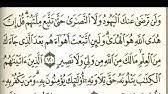 وَلَن تَرْضَىٰ عَنكَ ٱلْيَهُودُ وَلَا ٱلنَّصَـٰرَىٰ حَتَّىٰ تَتَّبِعَ مِلَّتَهُمْ ۗ قُلْ إِنَّ
هُدَى ٱللَّهِ هُوَ ٱلْهُدَىٰ ۗ وَلَئِنِ ٱتَّبَعْتَ أَهْوَآءَهُم بَعْدَ ٱلَّذِى جَآءَكَ
مِنَ ٱلْعِلْمِ ۙ مَا لَكَ مِنَ ٱللَّهِ مِن وَلِىٍّ وَلَا نَصِيرٍ ١٢٠ ٱلَّذِينَ ءَاتَيْنَـٰهُمُ
ٱلْكِتَـٰبَ يَتْلُونَهُۥ حَقَّ تِلَاوَتِهِۦٓ أُو۟لَـٰٓئِكَ يُؤْمِنُونَ بِهِۦ ۗ وَمَن يَكْفُرْ بِهِۦ